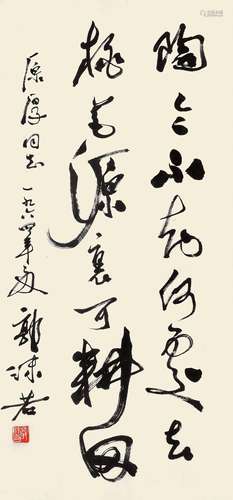 陶令不知何處去
桃花源裏可耕田
厚同志 一九六四年夏 郭沫若